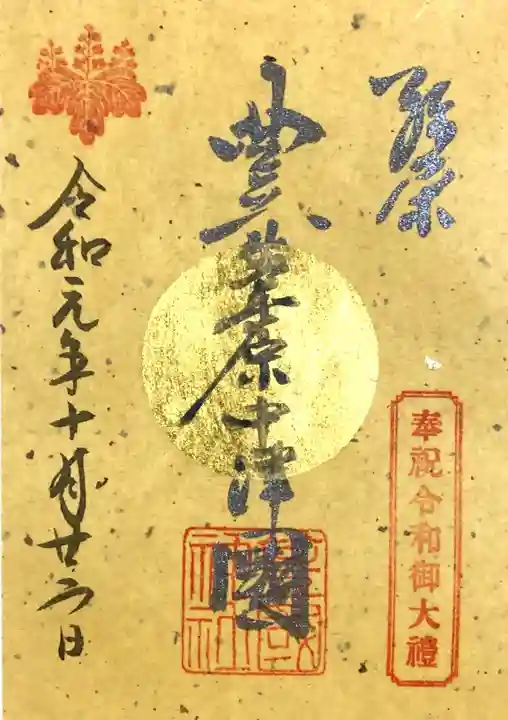 豊葦原中津國
奉祝令和御大禮
令和元年十月廿二日